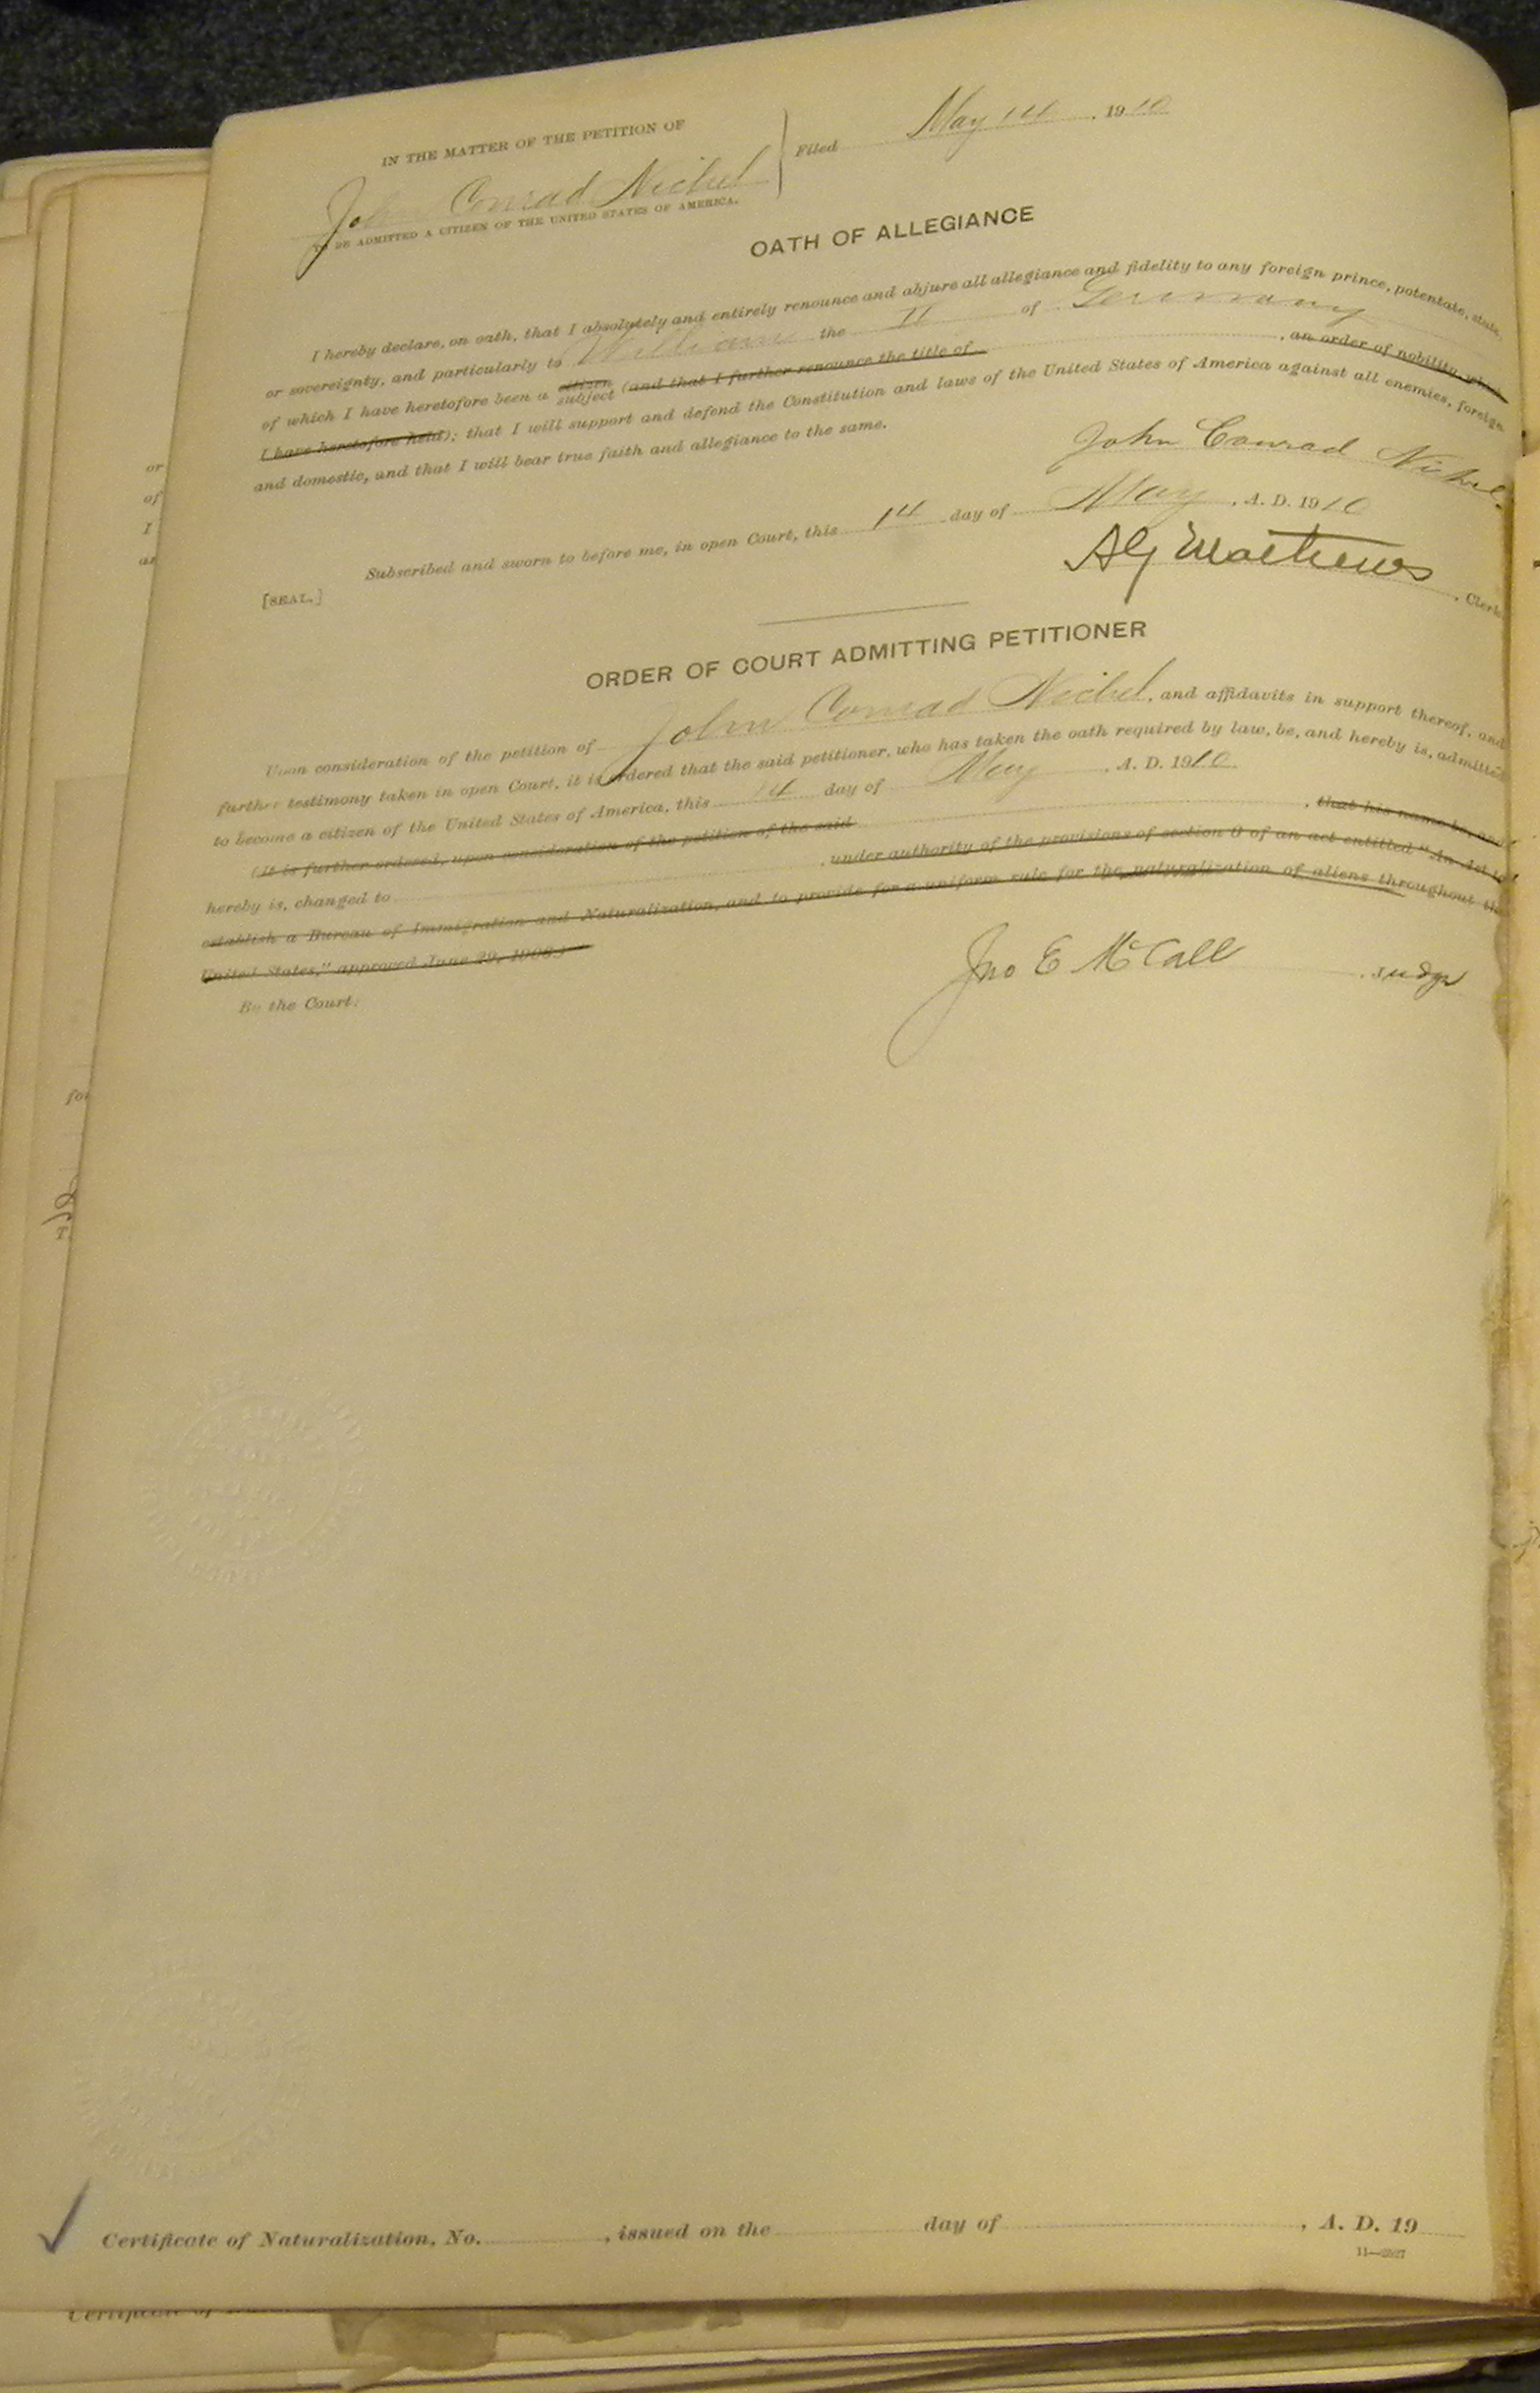 IN THE MATTER OF THE PETITION OF
John Conrad Nichel
TO BE ADMITTED A CITIZEN OF THE UNITED STATES OF AMERICA.
Filed May 14, 1910
OATH OF ALLEGIANCE
I hereby declare, on oath, that I absolutely and entirely renounce and abjure all allegiance and fidelity to any foreign prince, potentate, state,
or sovereignty, and particularly to William the II of Germany
of which I have heretofore been a citizen subject (and that I further renounce the title of , an order of nobility, which
I have heretofore held); that I will support and defend the Constitution and laws of the United States of America against all enemies, foreign
and domestic, and that I will bear true faith and allegiance to the same.
John Conrad Nichel
Subscribed and sworn to before me, in open Court, this 14 day of May, A. D. 1910
[SEAL.]
A G Matthews, Clerk
ORDER OF COURT ADMITTING PETITIONER
Upon consideration of the petition of John Conrad Nichel, and affidavits in support thereof, and
further testimony taken in open Court, it is ordered that the said petitioner, who has taken the oath required by law, be, and hereby is, admitted
to become a citizen of the United States of America, this 14 day of May, A. D. 1910
(It is further ordered, upon consideration of the petition of the said , that his name be, and
hereby is, changed to , under authority of the provisions of section 6 of an act entitled "An Act to
establish a Bureau of Immigration and Naturalization, and to provide for a uniform rule for the naturalization of aliens throughout the
United States," approved June 29, 1906.)
By the Court:
Jno E McCall, Judge
Certificate of Naturalization, No. , issued on the day of , A. D. 19
11—2527